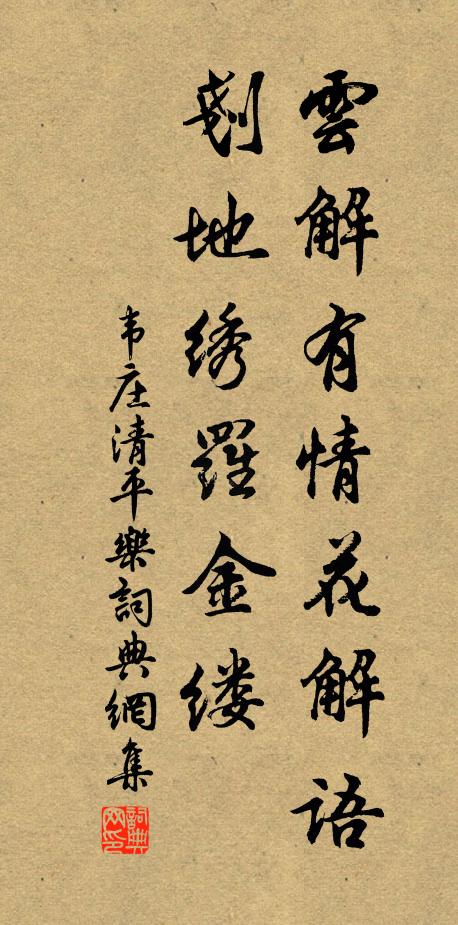 雲解有情花解語
剗地绣羅金缕
韦庄清平樂詞典網集
詞典网印